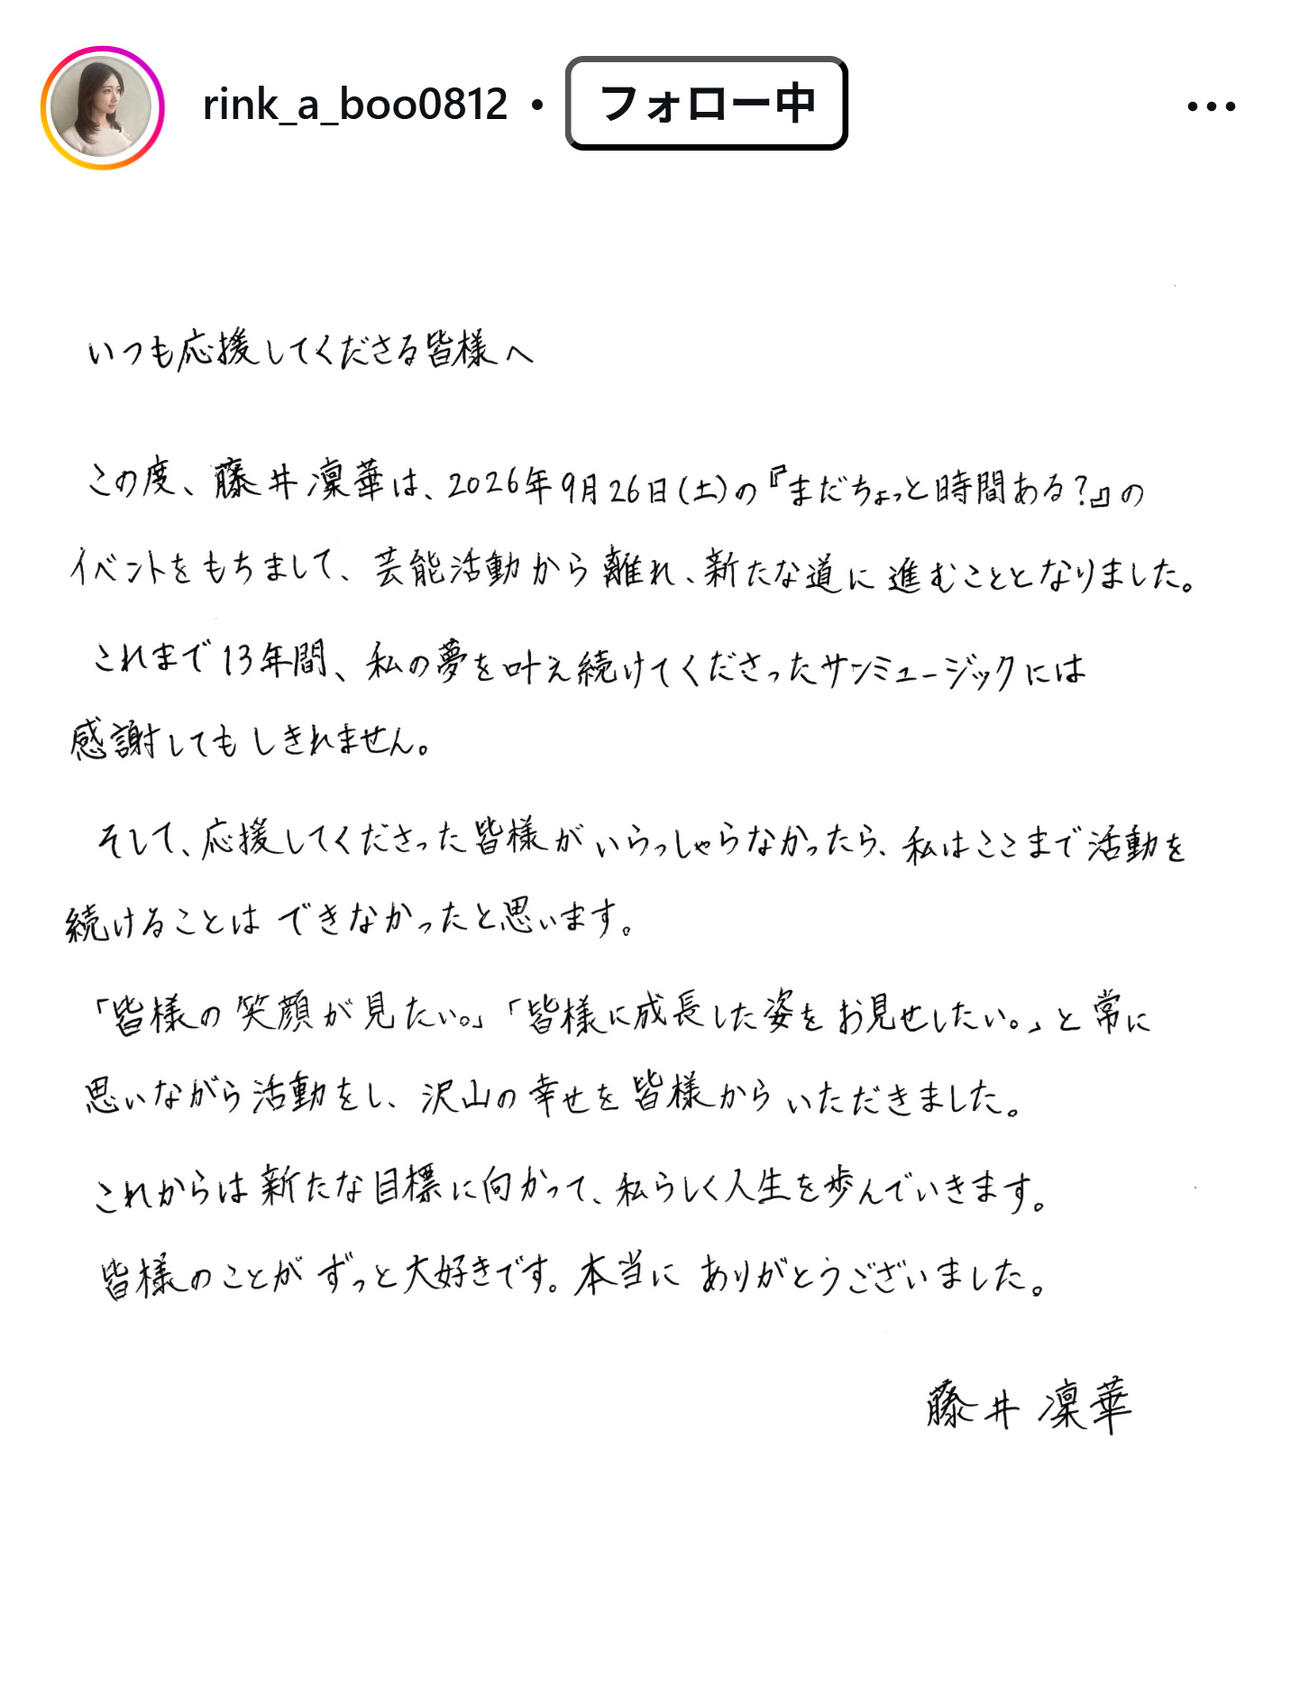 rink_a_boo0812 • フォロー中
いつも応援してくださる皆様へ
この度、藤井凜華は、2026年9月26日(土)の『まだちょっと時間ある?』の
イベントをもちまして、芸能活動から離れ、新たな道に進むこととなりました。
これまで13年間、私の夢を叶え続けてくださったサンミュージックには
感謝してもしきれません。
そして、応援してくださった皆様がいらっしゃらなかったら、私はここまで活動を
続けることはできなかったと思います。
「皆様の笑顔が見たい。」「皆様に成長した姿をお見せしたい。」と常に
思いながら活動をし、沢山の幸せを皆様からいただきました。
これからは新たな目標に向かって、私らしく人生を歩んでいきます。
皆様のことがずっと大好きです。本当にありがとうございました。
藤井凜華